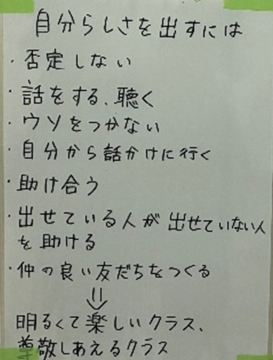 自分らしさを出すには
・否定しない
・話をする、聴く
・ウソをつかない
・自分から話かけに行く
・助け合う
・出せている人が出せていない人
を助ける
・仲の良い友だちをつくる
⇓
明るくて楽しいクラス、
尊敬しあえるクラス